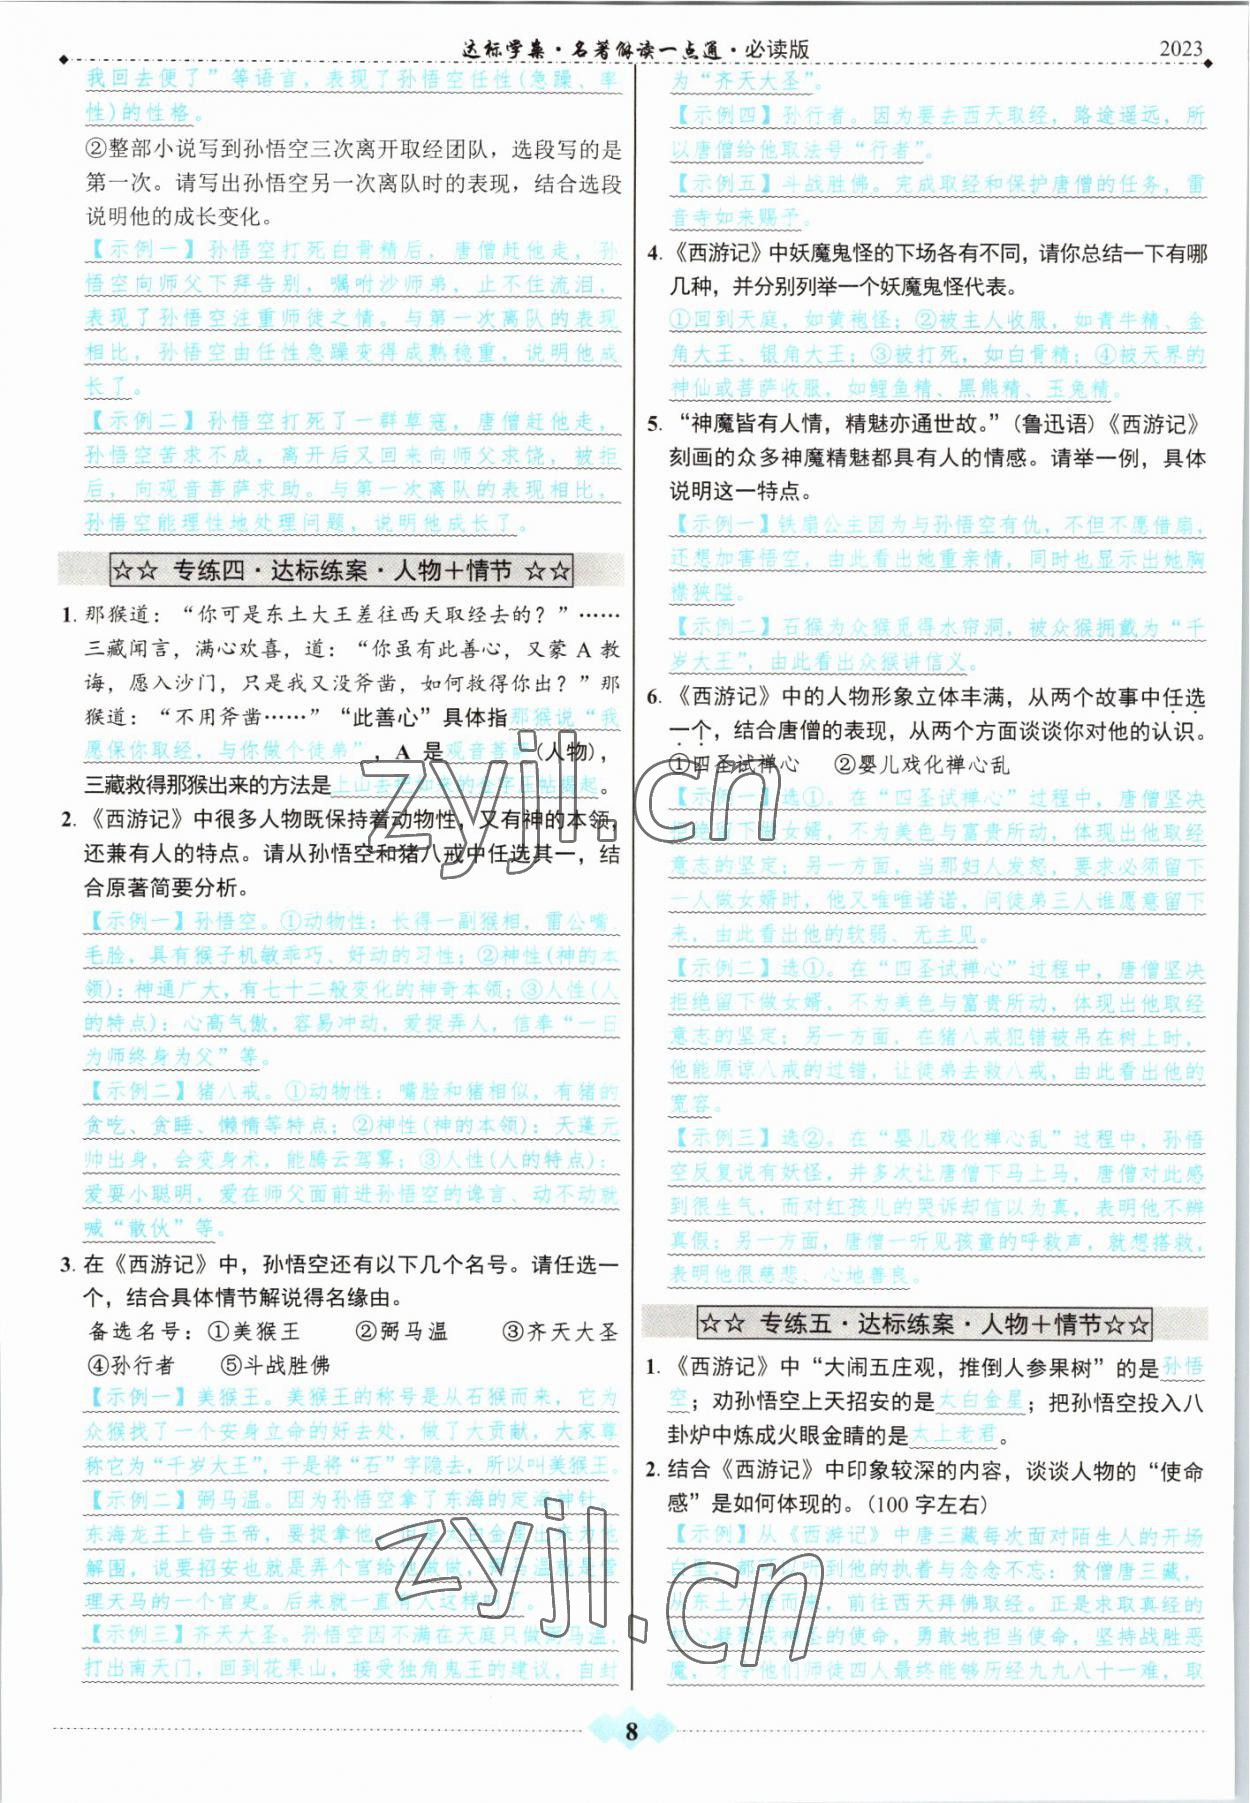 达标学案·名著解读一点通·必读版 2023
我回去便了”等语言，表现了孙悟空任性(急躁、率
性)的性格。
②整部小说写到孙悟空三次离开取经团队，选段写的是
第一次。请写出孙悟空另一次离队时的表现，结合选段
说明他的成长变化。
【示例一】孙悟空打死白骨精后，唐僧赶他走，孙
悟空向师父下拜告别，嘱咐沙师弟，止不住流泪，
表现了孙悟空注重师徒之情。与第一次离队的表现
相比，孙悟空由任性急躁变得成熟稳重，说明他成
长了。
【示例二】孙悟空打死了一群草寇，唐僧赶他走，
孙悟空苦求不成，离开后又回来向师父求饶，被拒
后，向观音菩萨求助。与第一次离队的表现相比，
孙悟空能理性地处理问题，说明他成长了。
☆☆ 专练四·达标练案·人物＋情节 ☆☆
1. 那猴道：“你可是东土大王差往西天取经去的？”……
三藏闻言，满心欢喜，道：“你虽有此善心，又蒙 A 教
诲，愿入沙门，只是我又没斧凿，如何救得你出？”那
猴道：“不用斧凿……”“此善心”具体指那猴说“我
愿保你取经，与你做个徒弟”，A 是观音菩萨(人物)，
三藏救得那猴出来的方法是上山去把如来的金字压帖揭起。
2. 《西游记》中很多人物既保持着动物性，又有神的本领，
还兼有人的特点。请从孙悟空和猪八戒中任选其一，结
合原著简要分析。
【示例一】孙悟空。①动物性：长得一副猴相，雷公嘴，
毛脸，具有猴子机敏乖巧、好动的习性；②神性(神的本
领)：神通广大，有七十二般变化的神奇本领；③人性(人
的特点)：心高气傲，容易冲动，爱捉弄人，信奉“一日
为师终身为父”等。
【示例二】猪八戒。①动物性：嘴脸和猪相似，有猪的
贪吃、贪睡、懒惰等特点；②神性(神的本领)：天蓬元
帅出身，会变身术，能腾云驾雾；③人性(人的特点)：
爱耍小聪明，爱在师父面前进孙悟空的谗言、动不动就
喊“散伙”等。
3. 在《西游记》中，孙悟空还有以下几个名号。请任选一
个，结合具体情节解说得名缘由。
备选名号：①美猴王 ②弼马温 ③齐天大圣
④孙行者 ⑤斗战胜佛
【示例一】美猴王。美猴王的称号是从石猴而来，它为
众猴找了一个安身立命的好去处，做了大贡献，大家尊
称它为“千岁大王”，于是将“石”字隐去，所以叫美猴王。
【示例二】弼马温。因为孙悟空拿了东海的定海神针，
东海龙王上告玉帝，要捉拿他，但是太白金星
解围，说要招安也就是弄个官给他做做，弼马温就是管
理天马的一个官吏。后来就一直有人这样叫了。
【示例三】齐天大圣。孙悟空因不满在天庭只做弼马温，
打出南天门，回到花果山，接受独角鬼王的建议，自封
为“齐天大圣”。
【示例四】孙行者。因为要去西天取经，路途遥远，所
以唐僧给他取法号“行者”。
【示例五】斗战胜佛。完成取经和保护唐僧的任务，雷
音寺如来赐予。
4. 《西游记》中妖魔鬼怪的下场各有不同，请你总结一下有哪
几种，并分别列举一个妖魔鬼怪代表。
①回到天庭，如黄袍怪；②被主人收服，如青牛精、金
角大王、银角大王；③被打死，如白骨精；④被天界的
神仙或菩萨收服，如鲤鱼精、黑熊精、玉兔精。
5. “神魔皆有人情，精魅亦通世故。”(鲁迅语)《西游记》
刻画的众多神魔精魅都具有人的情感。请举一例，具体
说明这一特点。
【示例一】铁扇公主因为与孙悟空有仇，不但不愿借扇，
还想加害悟空，由此看出她重亲情，同时也显示出她胸
襟狭隘。
【示例二】石猴为众猴觅得水帘洞，被众猴拥戴为“千
岁大王”，由此看出众猴讲信义。
6. 《西游记》中的人物形象立体丰满，从两个故事中任选
一个，结合唐僧的表现，从两个方面谈谈你对他的认识。
①四圣试禅心 ②婴儿戏化禅心乱
【示例一】选①。在“四圣试禅心”过程中，唐僧坚决
拒绝留下做女婿，不为美色与富贵所动，体现出他取经
意志的坚定；另一方面，当那妇人发怒，要求必须留下
一人做女婿时，他又唯唯诺诺，问徒弟三人谁愿意留下
来，由此看出他的软弱、无主见。
【示例二】选①。在“四圣试禅心”过程中，唐僧坚决
拒绝留下做女婿，不为美色与富贵所动，体现出他取经
意志的坚定；另一方面，在猪八戒犯错被吊在树上时，
他能原谅八戒的过错，让徒弟去救八戒，由此看出他的
宽容。
【示例三】选②。在“婴儿戏化禅心乱”过程中，孙悟
空反复说有妖怪，并多次让唐僧下马上马，唐僧对此感
到很生气，而对红孩儿的哭诉却信以为真，表明他不辨
真假；另一方面，唐僧一听见孩童的呼救声，就想搭救，
表明他很慈悲、心地善良。
☆☆ 专练五·达标练案·人物＋情节☆☆
1. 《西游记》中“大闹五庄观，推倒人参果树”的是孙悟
空；劝孙悟空上天招安的是太白金星；把孙悟空投入八
卦炉中炼成火眼金睛的是太上老君。
2. 结合《西游记》中印象较深的内容，谈谈人物的“使命
感”是如何体现的。(100 字左右)
【示例】从《西游记》中唐三藏每次面对陌生人的开场
白里，都可以听到他的执着与念念不忘：贫僧唐三藏，
从东土大唐而来，前往西天拜佛取经。正是求取真经的
初心凝聚成神圣的使命，勇敢地担当使命，坚持战胜恶
魔，才令他们师徒四人最终能够历经九九八十一难，取
8
zyjl.cn
zyjl.cn